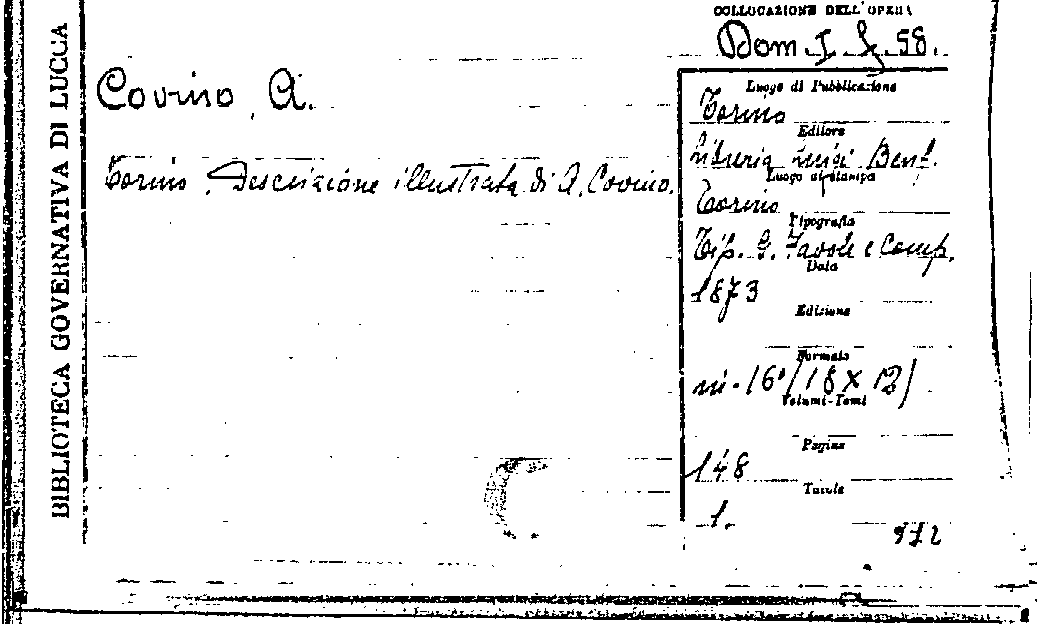 BIBLIOTECA GOVERNATIVA DI LUCCA
COLLOCAZIONE DELL'OPERA
Dom. I. g. 58.
Covino A.
Torino. Descrizione illustrata di A. Covino.
Luogo di Pubblicazione
Torino
Editore
Libreria Luigi Beuf.
Luogo di stampa
Torino
Tipografia
Tip. G. Favale e Comp.
Data
1873
Edizione
Formato
in-16°/18 x 12/
Volumi-Tomi
Pagine
148
Tavole
1.